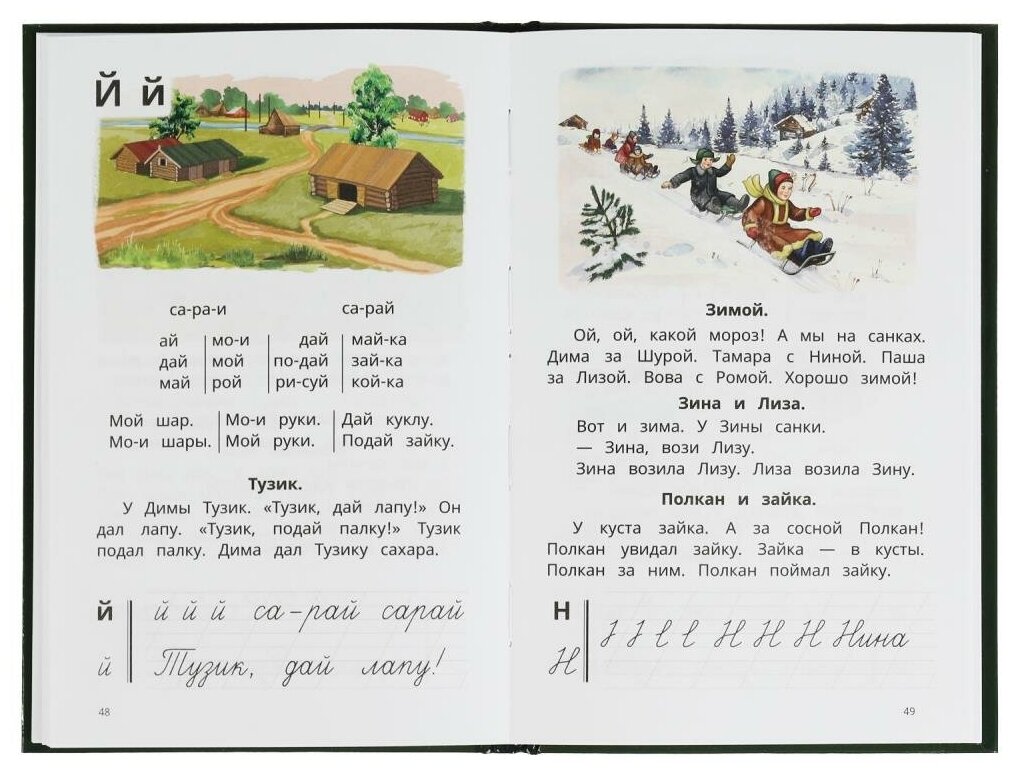 Й й
са-ра-и са-рай
ай мо-и дай май-ка
дай мой по-дай зай-ка
май рой ри-суй кой-ка
Мой шар. Мо-и руки. Дай куклу.
Мо-и шары. Мой руки. Подай зайку.
Тузик.
У Димы Тузик. «Тузик, дай лапу!» Он
дал лапу. «Тузик, подай палку!» Тузик
подал палку. Дима дал Тузику сахара.
й й й й са-рай сарай
й Тузик, дай лапу!
48
Зимой.
Ой, ой, какой мороз! А мы на санках.
Дима за Шурой. Тамара с Ниной. Паша
за Лизой. Вова с Ромой. Хорошо зимой!
Зина и Лиза.
Вот и зима. У Зины санки.
— Зина, вози Лизу.
Зина возила Лизу. Лиза возила Зину.
Полкан и зайка.
У куста зайка. А за сосной Полкан!
Полкан увидал зайку. Зайка — в кусты.
Полкан за ним. Полкан поймал зайку.
Н
Н Н Н Н Нина
49